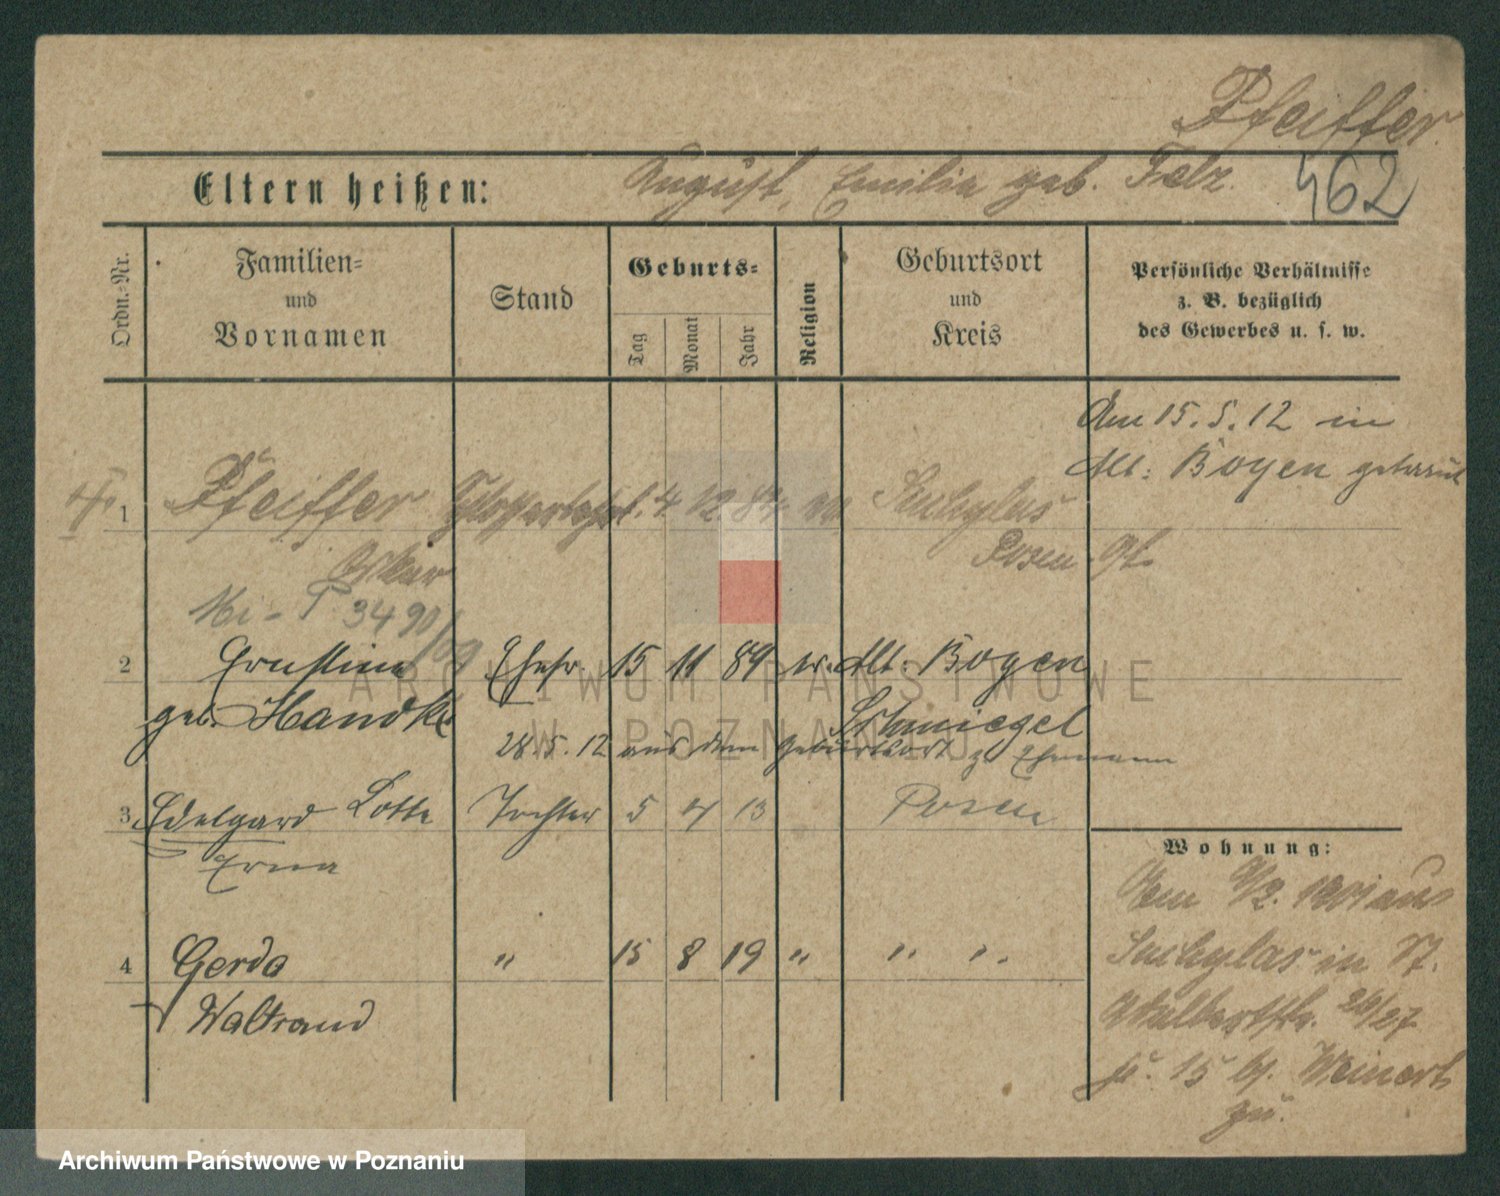 Pfeiffer
Eltern heißen: August, Emilie geb. Felz.
462
Ordn.-Nr.
Familien-
und
Vornamen
Stand
Geburts-
Tag
Monat
Jahr
Religion
Geburtsort
und
Kreis
Persönliche Verhältnisse
z. B. bezüglich
des Gewerbes u. s. w.
Am 15.5.12 in
Alt: Boyen getraut
1 Pfeiffer 4 12 84
Oskar
Posen
3490/09
2 Ernstine Ehefr. 15 11 89 ev. Alt: Boyen
geb. Handke Schmiegel
28.5.12 aus dem Geburtsort z. Ehemann
3 Edelgard Lotte Tochter 5 4 13 Posen
Erna
4 Gerda " 15 8 19 " " "
Waltraud
Wohnung:
Vom 9/2. 1901 aus
in St.
26/27
zu 15 bei Weinert
zu.
ARCHIWUM PAŃSTWOWE
W POZNANIU
Archiwum Państwowe w Poznaniu